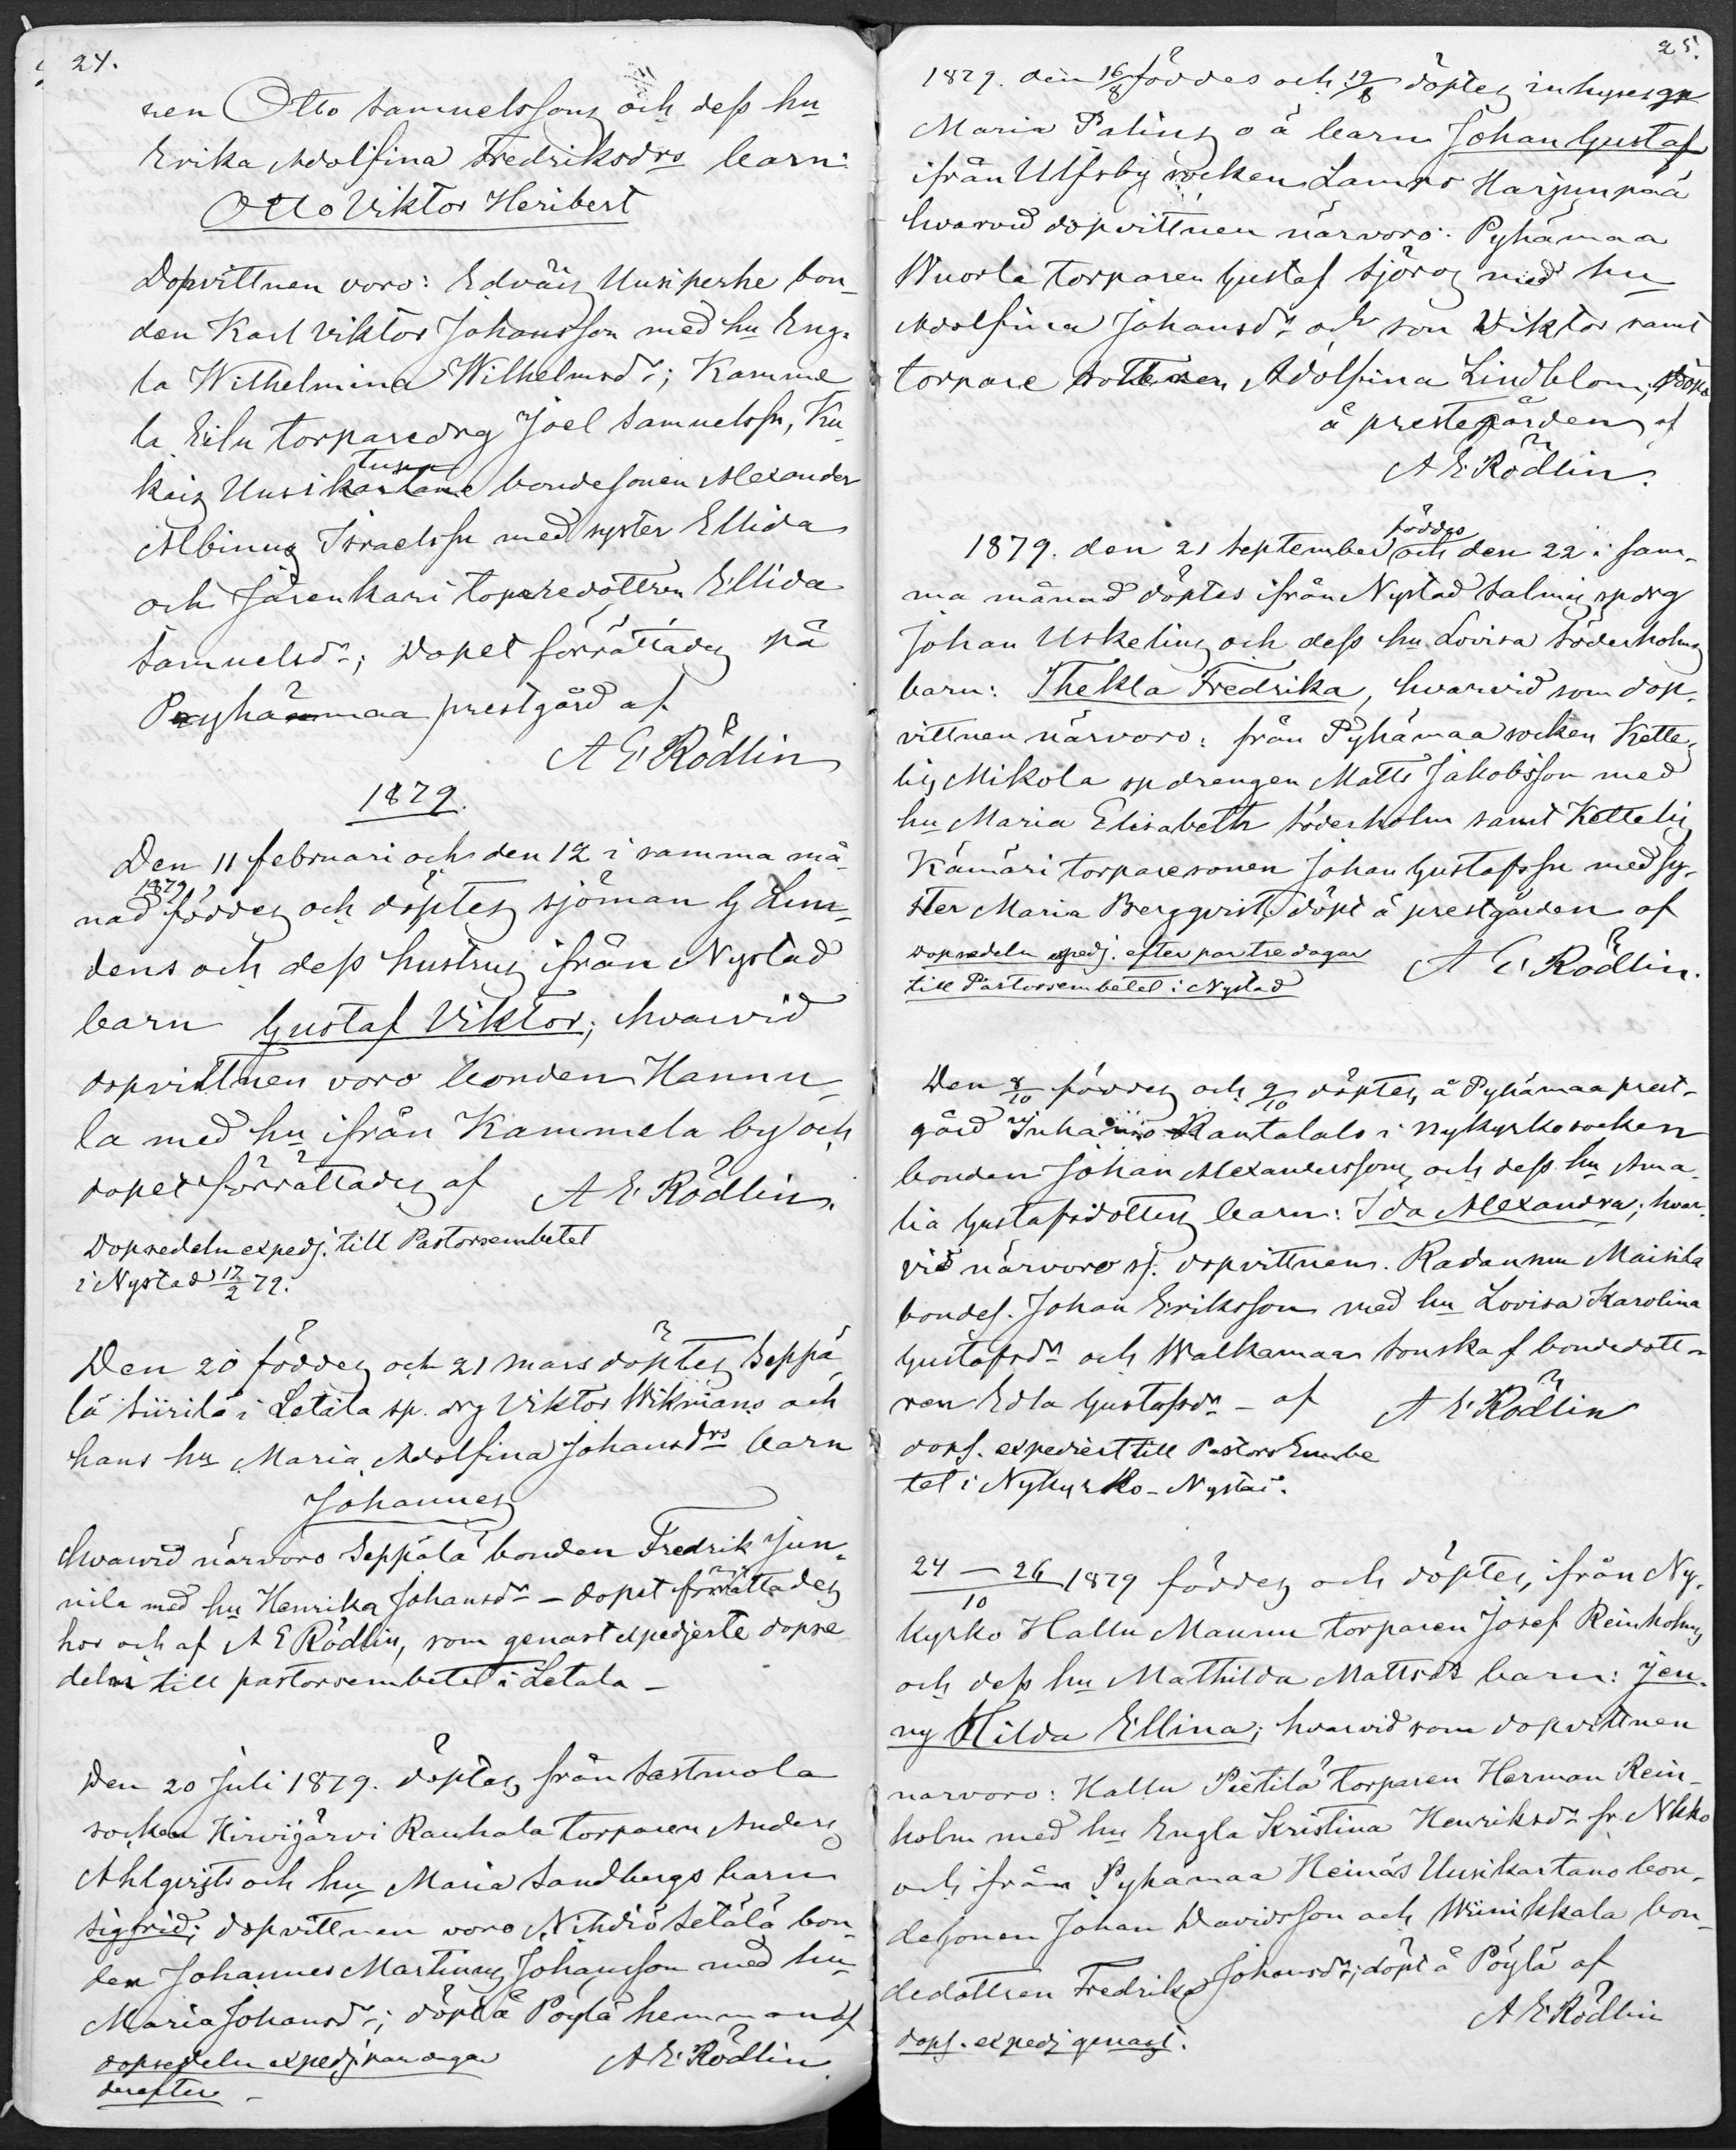 24.
nen Otto Samuelssons och dess hu
Erika Adolfina Fredriksdrs barn:
Otto Viktor Heribert
Dopvittnen voro: Edväis Uusiperhe bon-
den Karl Viktor Johansson med hu Eng-
la Wilhelmina Wilhelmsdr; Kamme
la Eilu torparedrg Joel Samuelssn, Ku-
kais Uusikartano bondesonen Alexander
Albinus Israelssn med syster Ellida
och Järenkari toparedottren Ellida
Samuelsdr; Dopet förrättades på
Pyhämaa prestgård af
A E Rödlin
1879.
Den 11 februari och den 12 i samma må
1879
nad föddes och döptes sjöman G Lin-
dens och dess hustrus ifrån Nystad
barn Gustaf Viktor; hvarvid
dopvittnen voro bonden Hannu-
la med hu ifrån Kammela by och
dopet förrättades af A E Rödlin.
Dopsedeln expedj. till Pastorsembetet
i Nystad 17/2 79.
Den 20 föddes och 21 mars döptes Seppä-
lä Siirilä i Letala sp. drg Viktor Wikmans och
hans hu Maria Adolfina Johansdrs barn
Johannes
hvarvid närvoro Seppälä bonden Fredrik Jun-
nila med hu Henrika Johansdr – dopet förrättades
hos och af A E Rödlin, som genast expedjerte dopse
deln till pastorsembetet i Letala –
Den 20 Juli 1879. döptes från Sastmola
socken Hirvijärvi Rauhala torparen Anders
Ahlqvists och hu Maria Sandbergs barn
Sigfrid; dopvittnen voro Nihdiö Setälä bon-
den Johannes Martinus Johansson med hu
Maria Johansdr; döpt å Pöylä hemman af
dopsedeln expedj. par dagar A E Rödlin.
derefter –
25.
1879. den 16/8 föddes och 19/8 döptes inhyses
Maria Palins o ä barn Johan Gustaf
ifrån Ulfsby socken Harjunpää
hvarvid dopvittnen närvoro: Pyhämaa
Wuorla torparen Gustaf Sjöros med hu
Adolfina Johansdr och son Viktor samt
torpare dottren Adolfina Lindblom, döpt
å prestegården af
A E Rödlin.
föddes
1879. den 21 September och den 22 i sam-
ma månad döptes ifrån Nystad Salmis sp drg
Johan Uskelins och dess hu Lovisa Söderholms
barn: Thekla Fredrika, hvarvid som dop-
vittnen närvoro: från Pyhämaa socken Kette-
lis Mikola sp drengen Matts Jakobsson med
hu Maria Elisabeth Söderholm samt Kettelis
Kämäri torparesonen Johan Gustafssn med sy-
ster Maria Bergqvist, döpt å prestgården af
dopsedeln expedj. efter par tre dagar A E Rödlin.
till Pastorsembetet i Nystad
Den 8/10 föddes och 9/10 döptes, å Pyhämaa prest-
gård Rantalals i Nykyrko socken
bonden Johan Alexanderssons och dess hu Ama-
lia Gustafsdotters barn: Ida Alexandra; hvar-
vid närvoro sj. dopvittnen. Radansuu Maisila
bondes. Johan Eriksson med hu Lovisa Karolina
Gustafsdr och Walkamaa Souska f bondedott-
ren Edla Gustafsdr – af A E Rödlin
dops. expediert till Pastors Embe
tet i Nykyrko-Nystad.
24 – 26/10 1879 föddes och döptes, ifrån Ny-
kyrko Hallu Maunu torparen Josef Reinholms
och dess hu Mathilda Mattsdrs barn: Jen-
ny Hilda Ellina; hvarvid som dopvittnen
narvoro: Hallu Pietilä torparen Herman Rein-
holm med hu Engla Kristina Henriksdr fr. Nkko
och ifrån Pyhämaa Heinäs Uusikartano bon-
desonen Johan Davidsson och Wiinikkala bon-
dedottren Fredrika Johansdr; döpt å Pöylä af
A E Rödlin
dops. expedj genast.